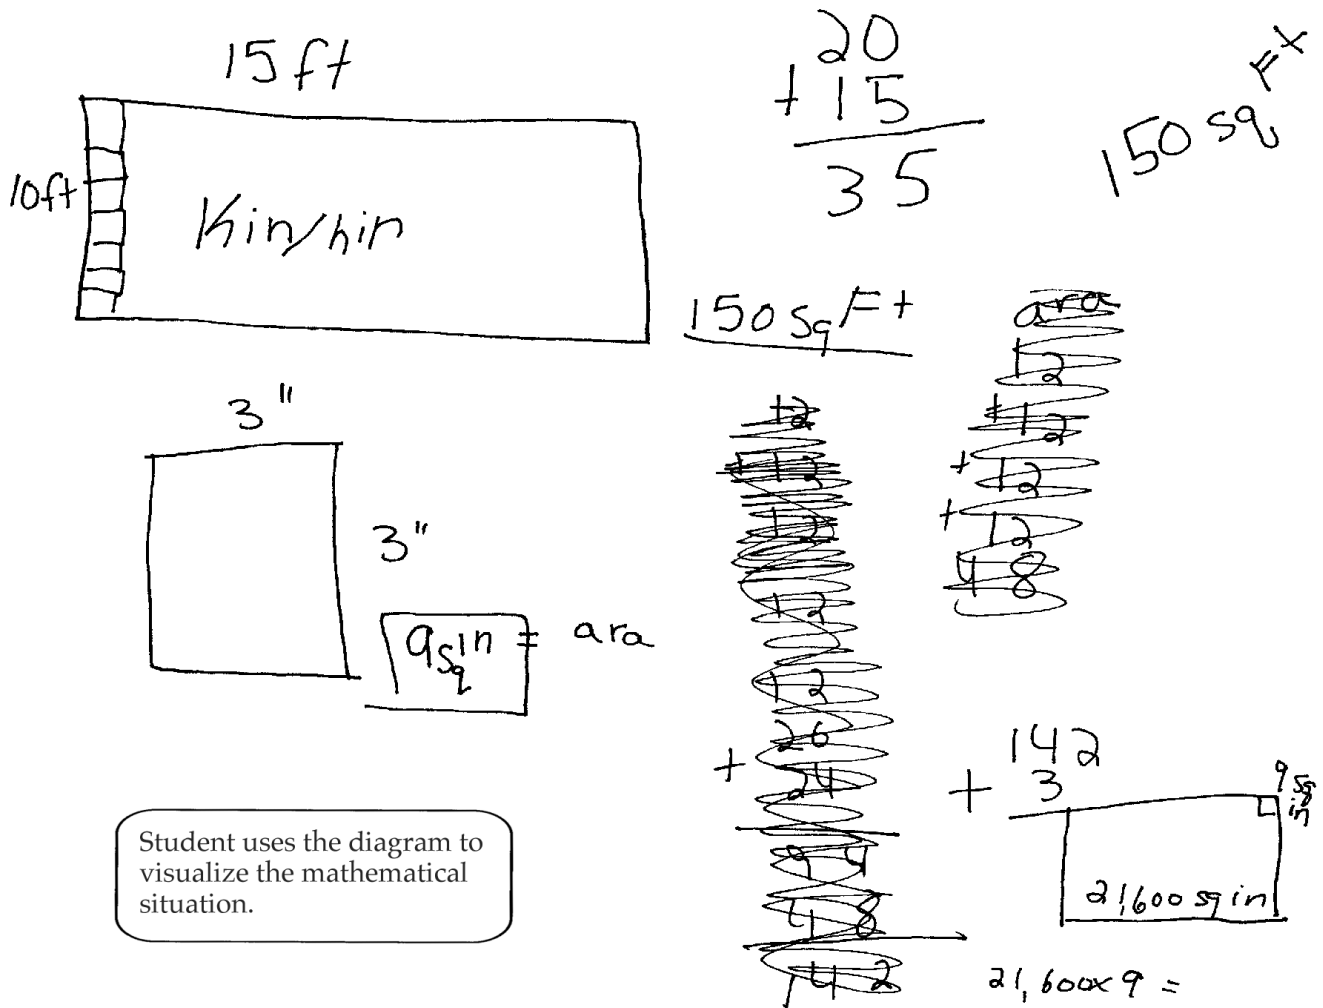 15 ft
10ft
20
+ 15
35
150 sq
150 sq Ft
ara
12
+ 12
+ 12
+ 12
48
3"
3"
9 sq in = ara
12
+ 12
12
12
12
26
+ 24
94
48
142
142
+ 3
9 sq
in
21,600 sq in
21,600 x 9 =
Student uses the diagram to
visualize the mathematical
situation.